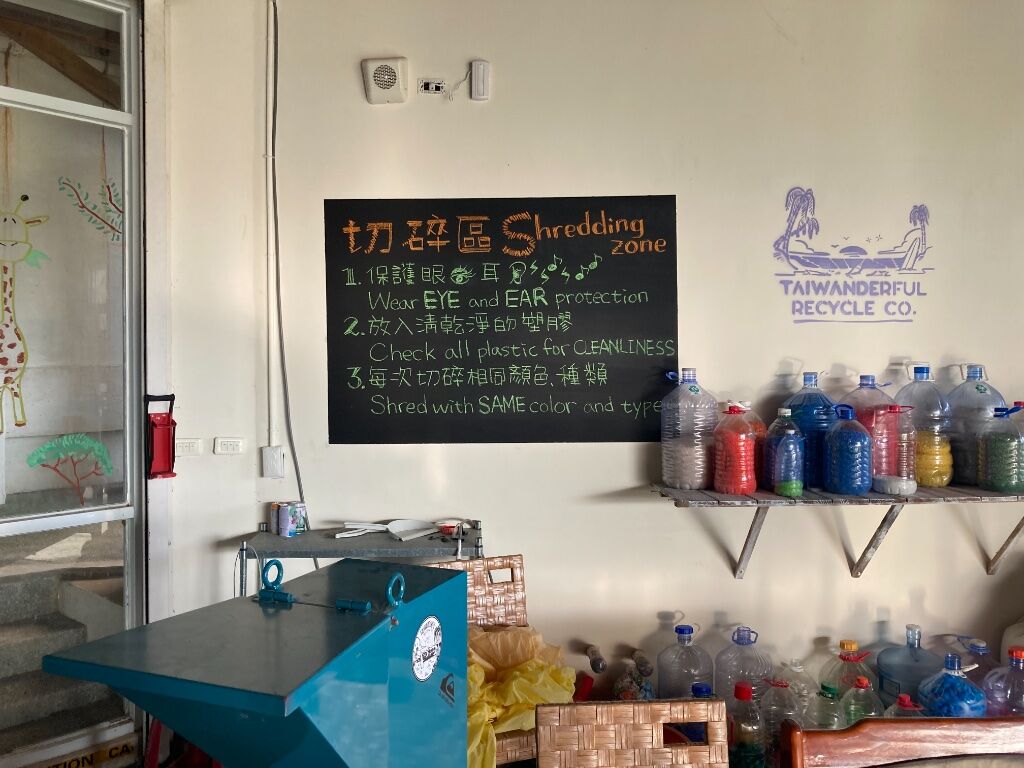 切碎區 Shredding zone
1. 保護眼 耳
Wear EYE and EAR protection
2. 放入清乾淨的塑膠
Check all plastic for CLEANLINESS
3. 每次切碎相同顏色、種類
Shred with SAME color and type
TAIWANDERFUL
RECYCLE CO.
TION CA